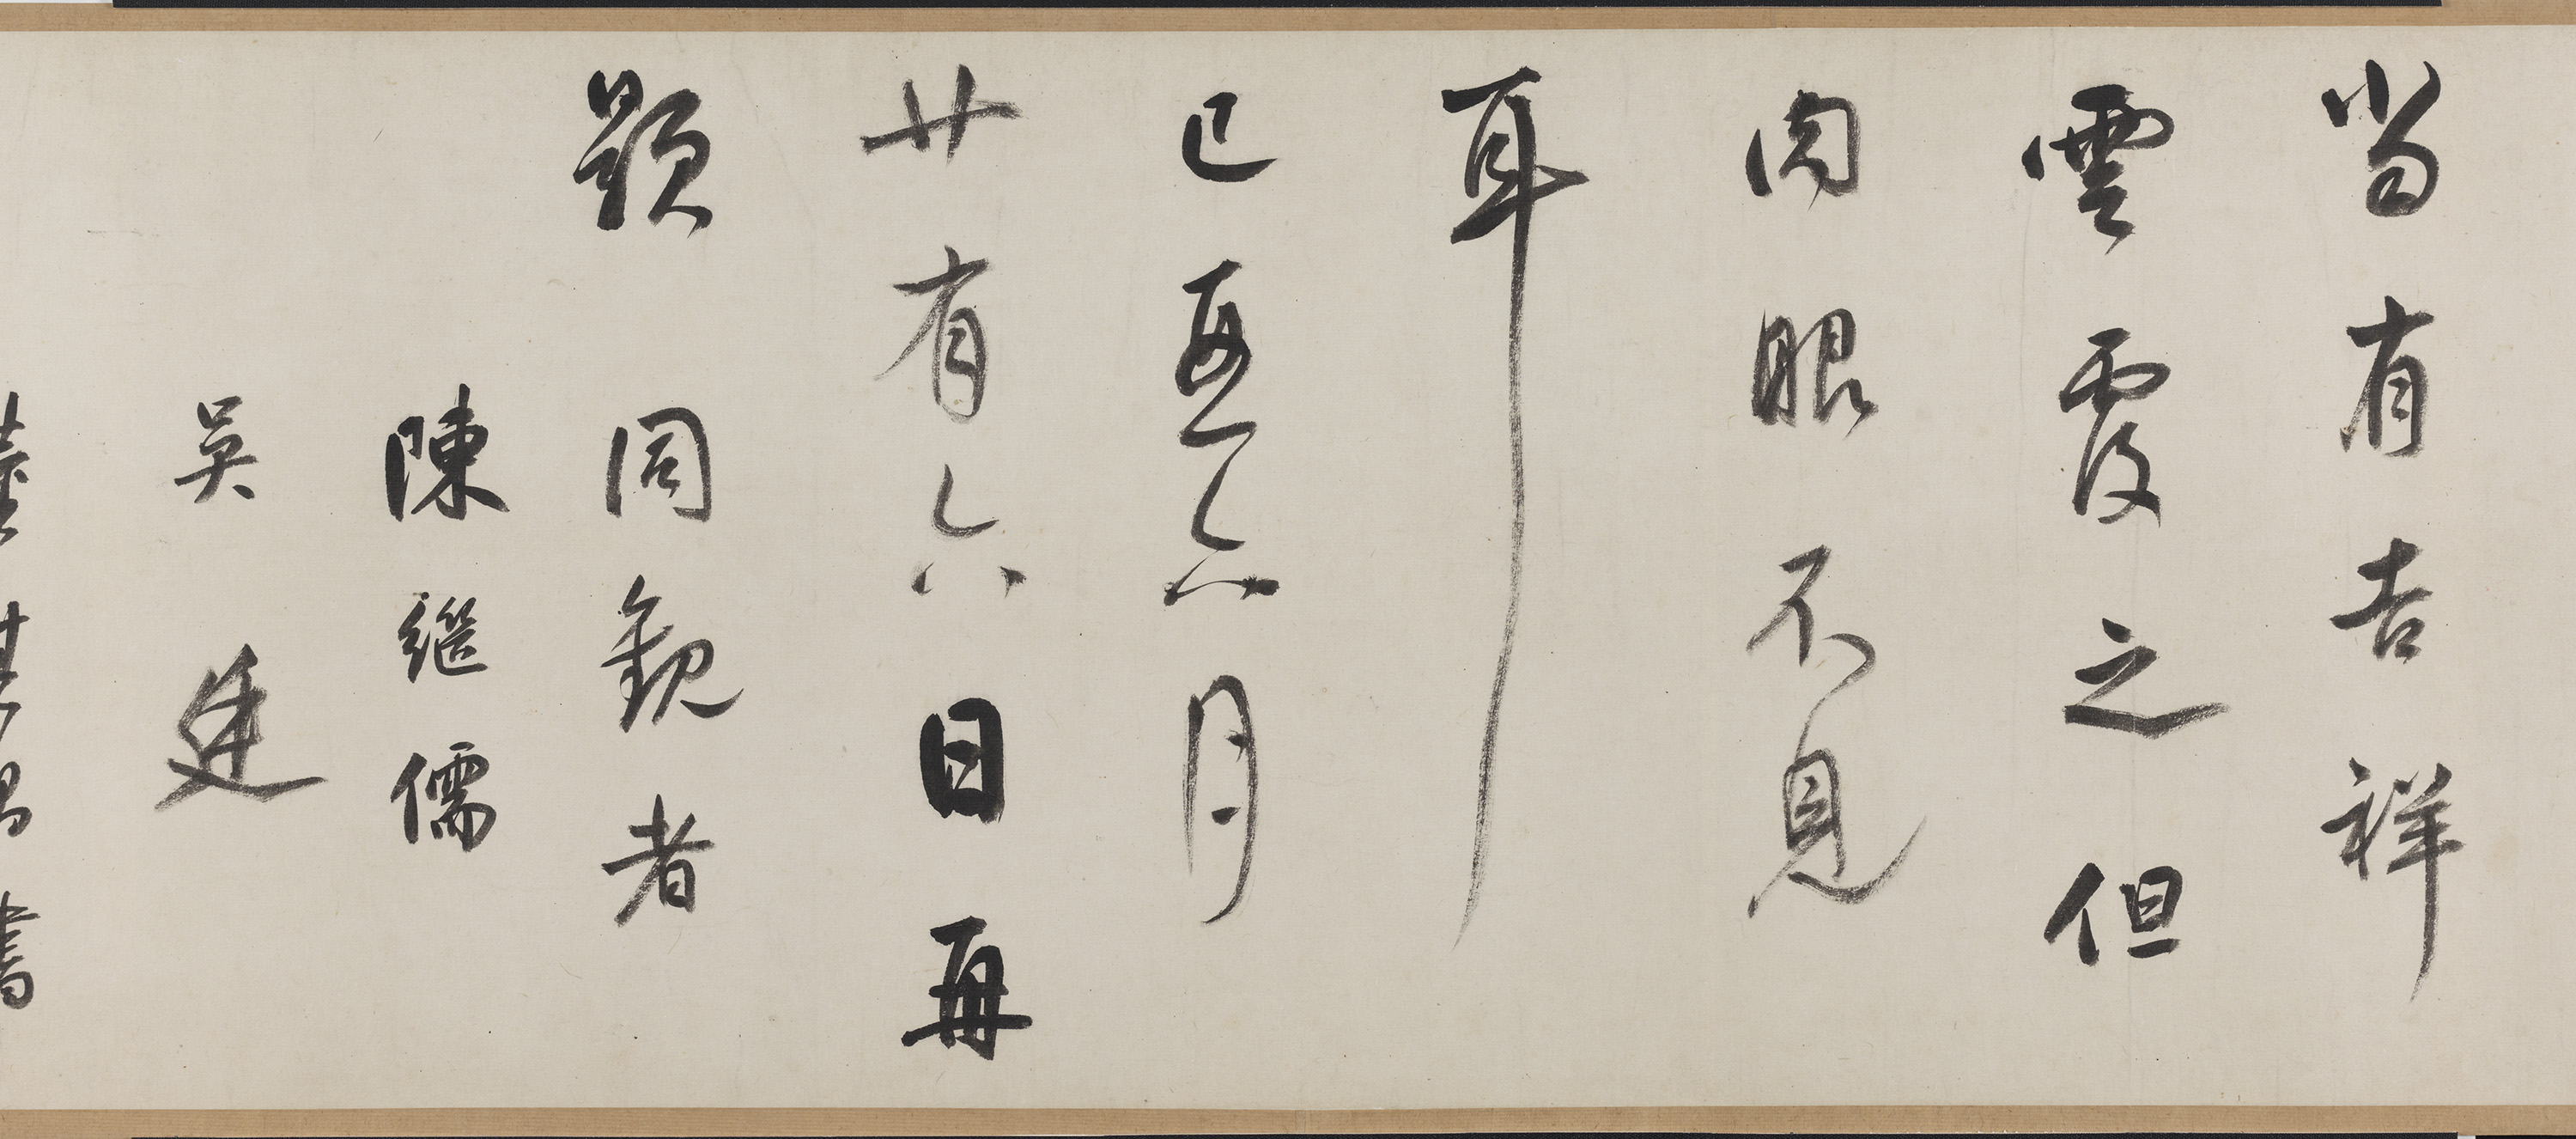 当有吉祥
雲覆之但
肉眼不見
耳
己亥六月
廿有六日再
題
同觀者
陳繼儒
吳廷
董其昌書